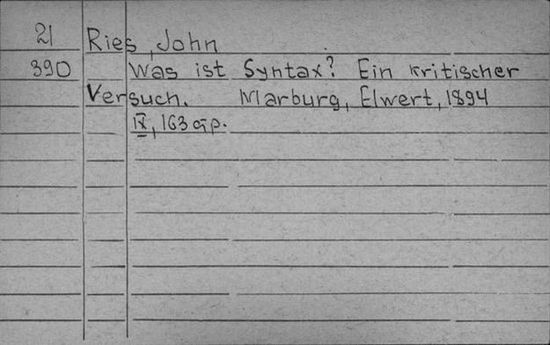 21 Ries, John
390 Was ist Syntax? Ein kritischer
Versuch. Marburg, Elwert, 1894
IX, 163 p.